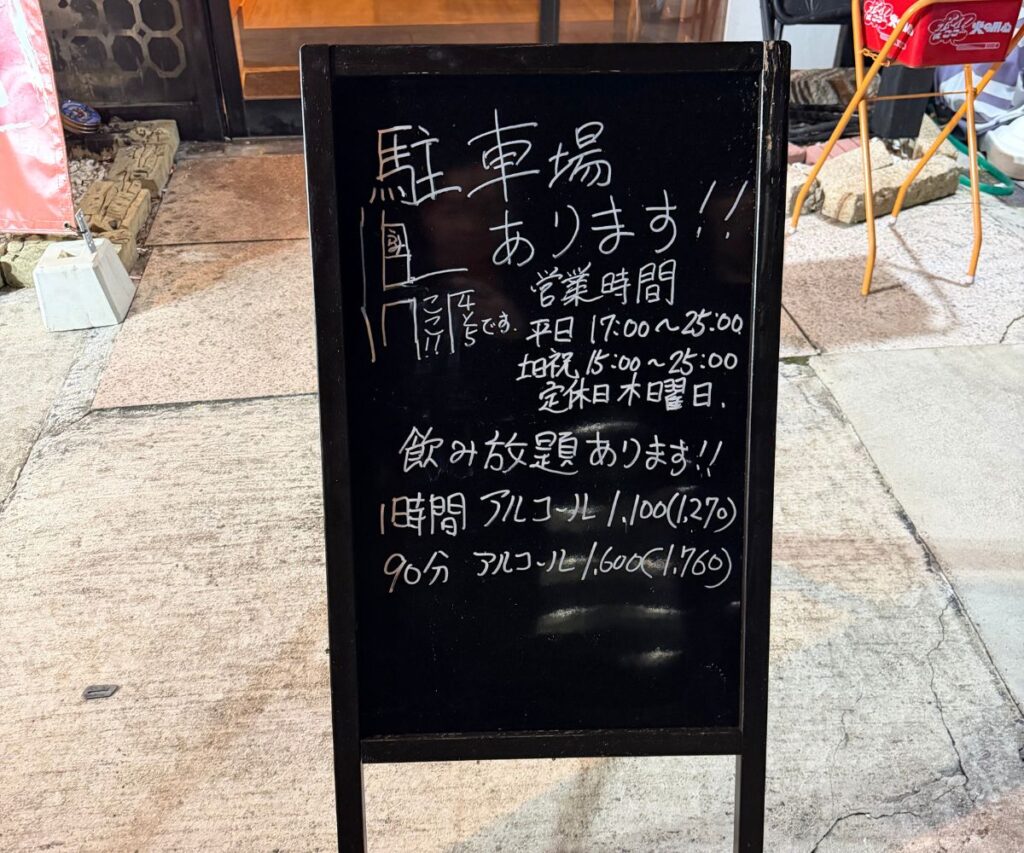 駐車場
あります!!
ココ!?
4と5
です.
営業時間
平日 17:00〜25:00
土日祝 15:00〜25:00
定休日 木曜日.
飲み放題あります!!
1時間 アルコール 1,100(1,270)
90分 アルコール 1,600(1,760)